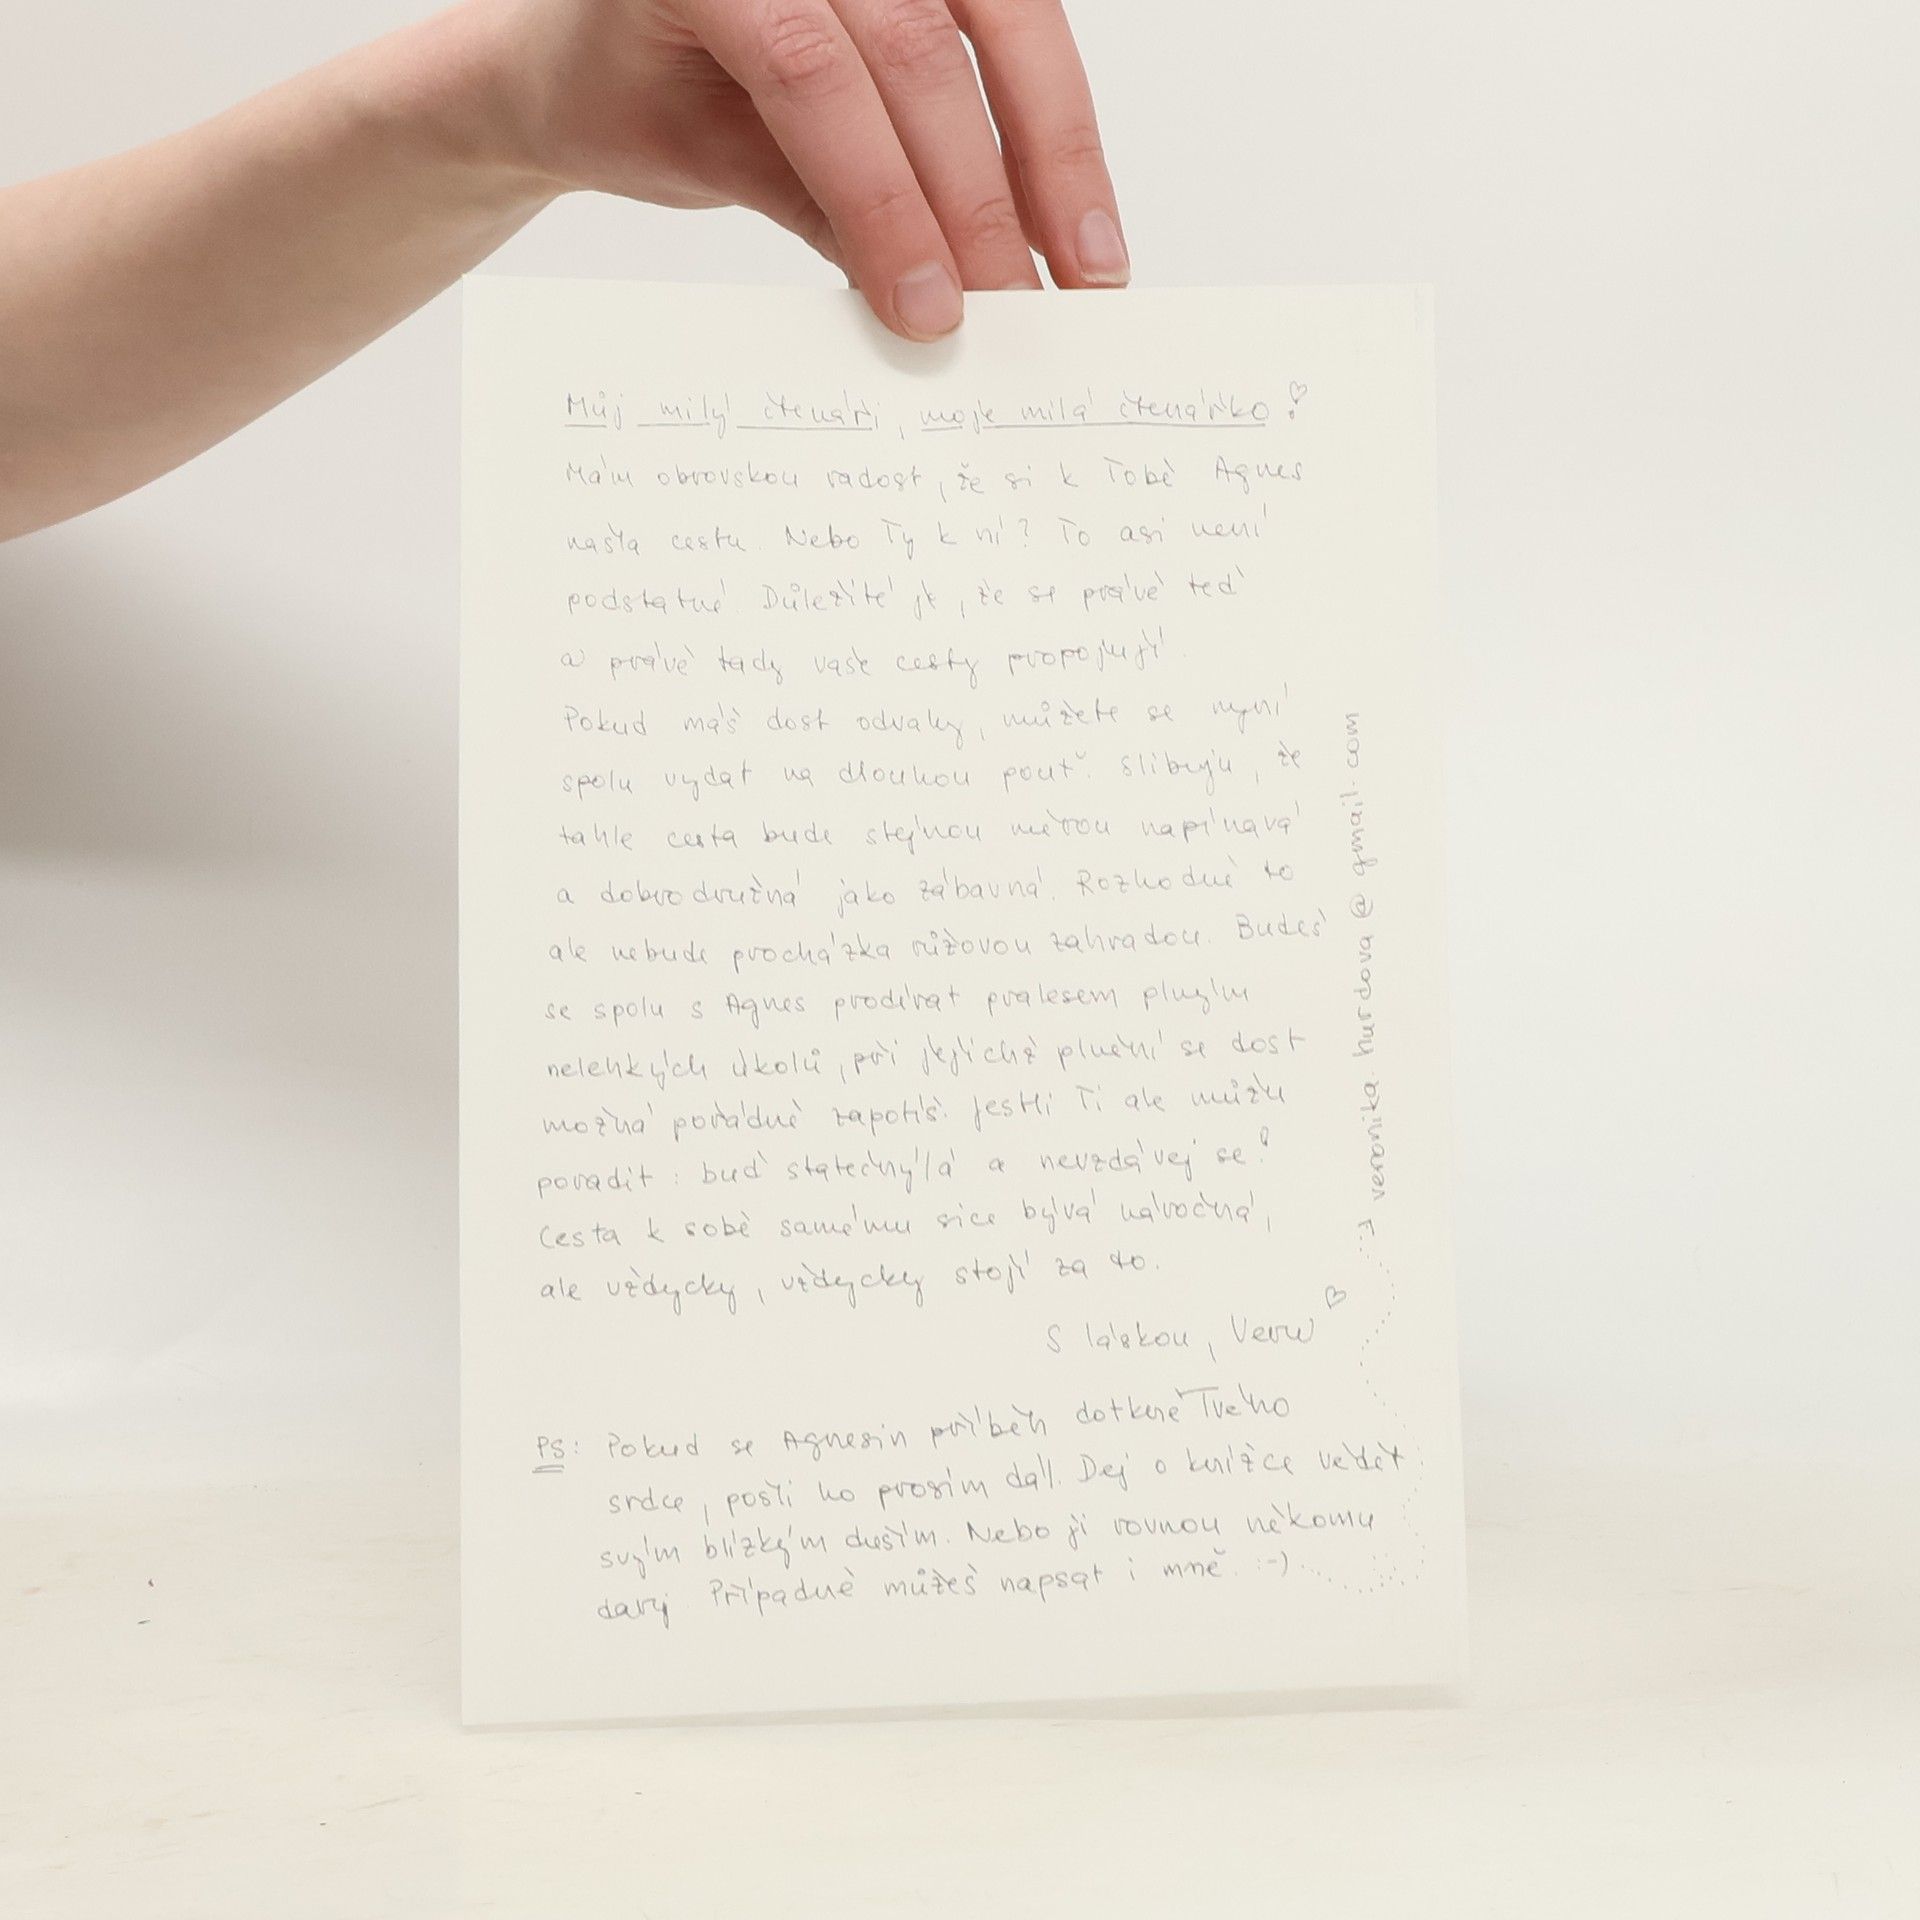 Můj milý čtenáři, moje milá čtenářko!
Mám obrovskou radost, že si k Tobě Agnes
našla cestu. Nebo Ty k ní? To asi není
podstatné. Důležité je, že se právě teď
a právě tady vaše cesty propojují.
Pokud máš dost odvahy, můžete se nyní
spolu vydat na dlouhou pouť. Slibuju, že
tahle cesta bude stejnou měrou napínavá
a dobrodružná jako zábavná. Rozhodně to
ale nebude procházka růžovou zahradou. Budeš
se spolu s Agnes prodírat pralesem plným
nelehkých úkolů, při jejichž plnění se dost
možná pořádně zapotíš. Jestli Ti ale můžu
poradit: buď statečný/á a nevzdávej se!
Cesta k sobě samému sice bývá náročná,
ale vždycky, vždycky stojí za to.
S láskou, Veru
PS: Pokud se Agnesin příběh dotkne Tvého
srdce, pošli ho prosím dál. Dej o knížce vědět
svým blízkým duším. Nebo ji rovnou někomu
daruj. Případně můžeš napsat i mně. :-)
veronika.hurdova@gmail.com